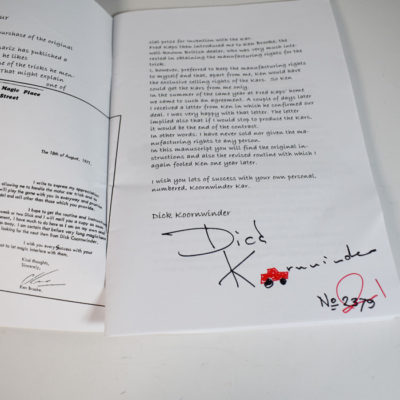 UT
purchase of the original
haric has published a
he likes
e of the tricks he men-
That might explain
one of
Magic Place
Street
The 18th of August, 1977
I write to express my appreciation
allowing me to handle the motor car trick and to
I hope to get the routine and instructions
week or two Dick and I will mail you a copy as soon
I wish you every success with your
Kind thoughts,
Sincerely,
Ken Brooke.
cial prize for invention with the Kar.
Fred Kaps then introduced me to Ken Brooke, the
well-known British dealer, who was very much inte-
rested in obtaining the manufacturing rights for the
trick.
I, however, preferred to keep the manufacturing rights
to myself and that, apart from me, Ken would have
the exclusive selling rights of the Kars. So Ken
could get the Kars from me only.
In the summer of the same year at Fred Kaps' home
we came to such an agreement. A couple of days later
I received a letter from Ken in which he confirmed our
deal. I was very happy with that letter. The letter
implied also that if I would stop to produce the Kars,
it would be the end of the contract.
In other words: I have never sold nor given the ma-
nufacturing rights to any person.
In this manuscript you will find the original in-
structions and also the revised routine with which I
again fooled Ken one year later.
I wish you lots of success with your own personal,
numbered, Koornwinder Kar.
Dick Koornwinder
Dick
Koornwinder